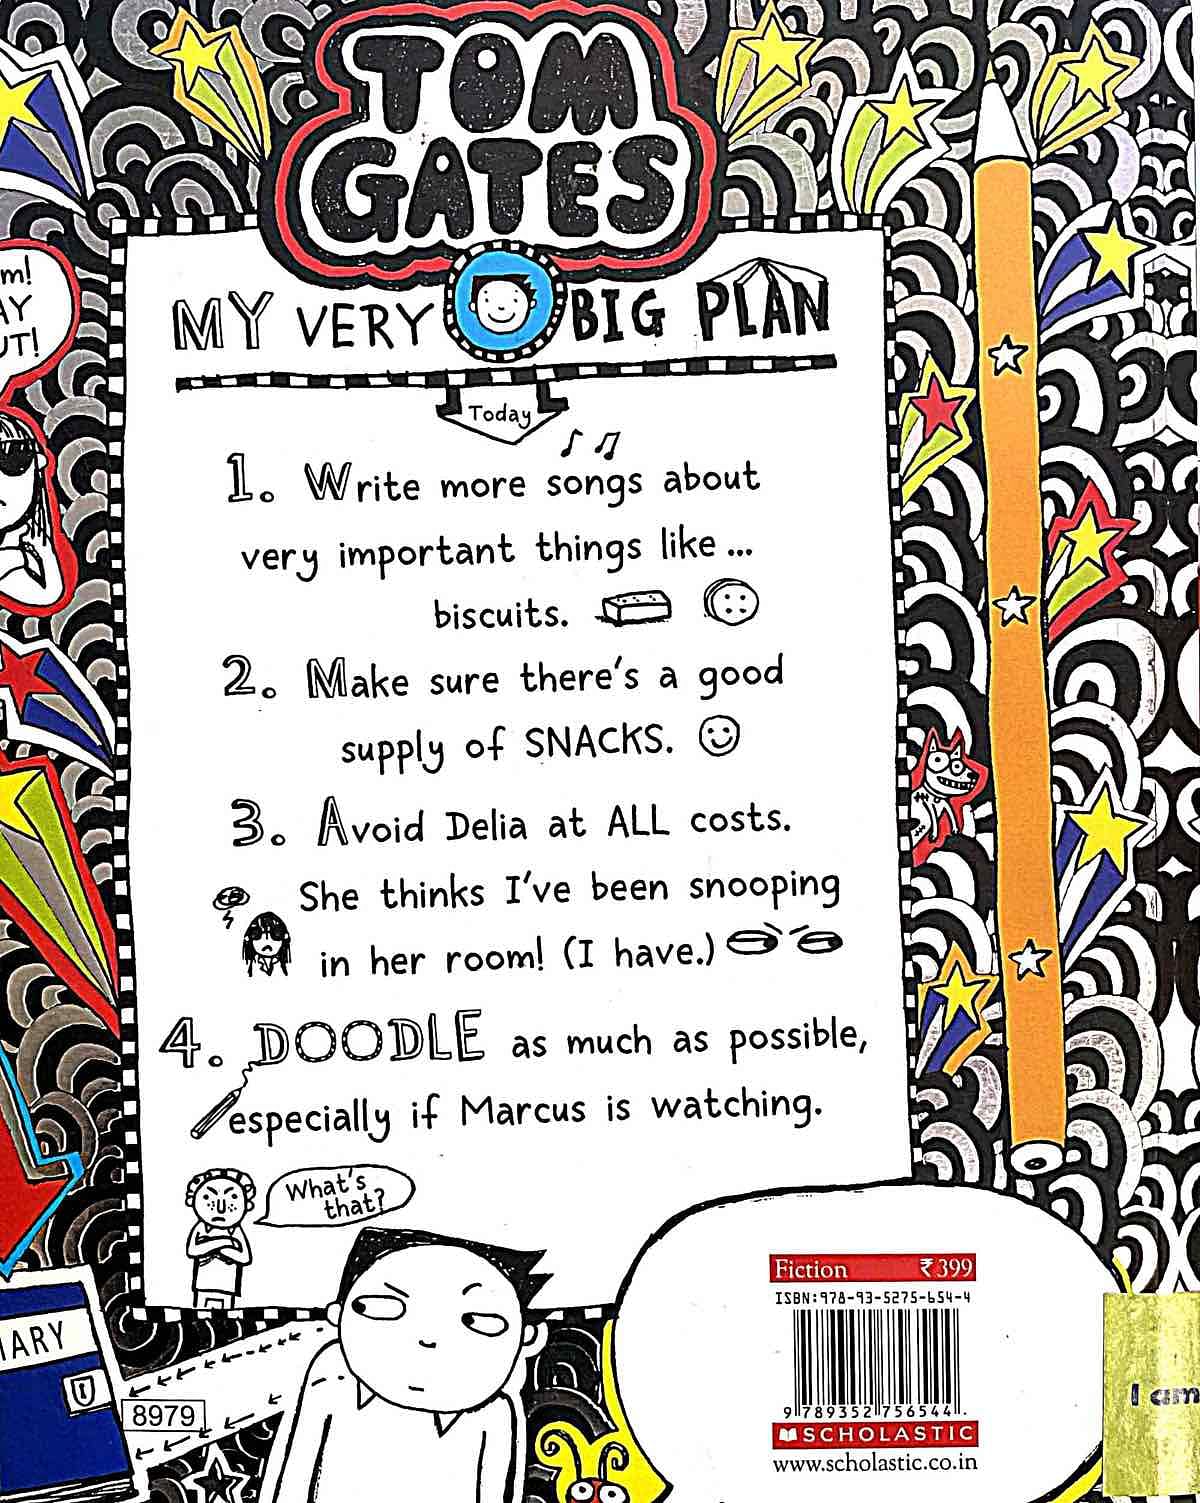 TOM
GATES
m!
AY
UT!
MY VERY BIG PLAN
Today
1. Write more songs about
very important things like ...
biscuits.
2. Make sure there's a good
supply of SNACKS.
3. Avoid Delia at ALL costs.
She thinks I've been snooping
in her room! (I have.)
4. DOODLE as much as possible,
especially if Marcus is watching.
What's
that?
IARY
8979
Fiction ₹399
ISBN:978-93-5275-654-4
9 789352 756544
SCHOLASTIC
www.scholastic.co.in
I am